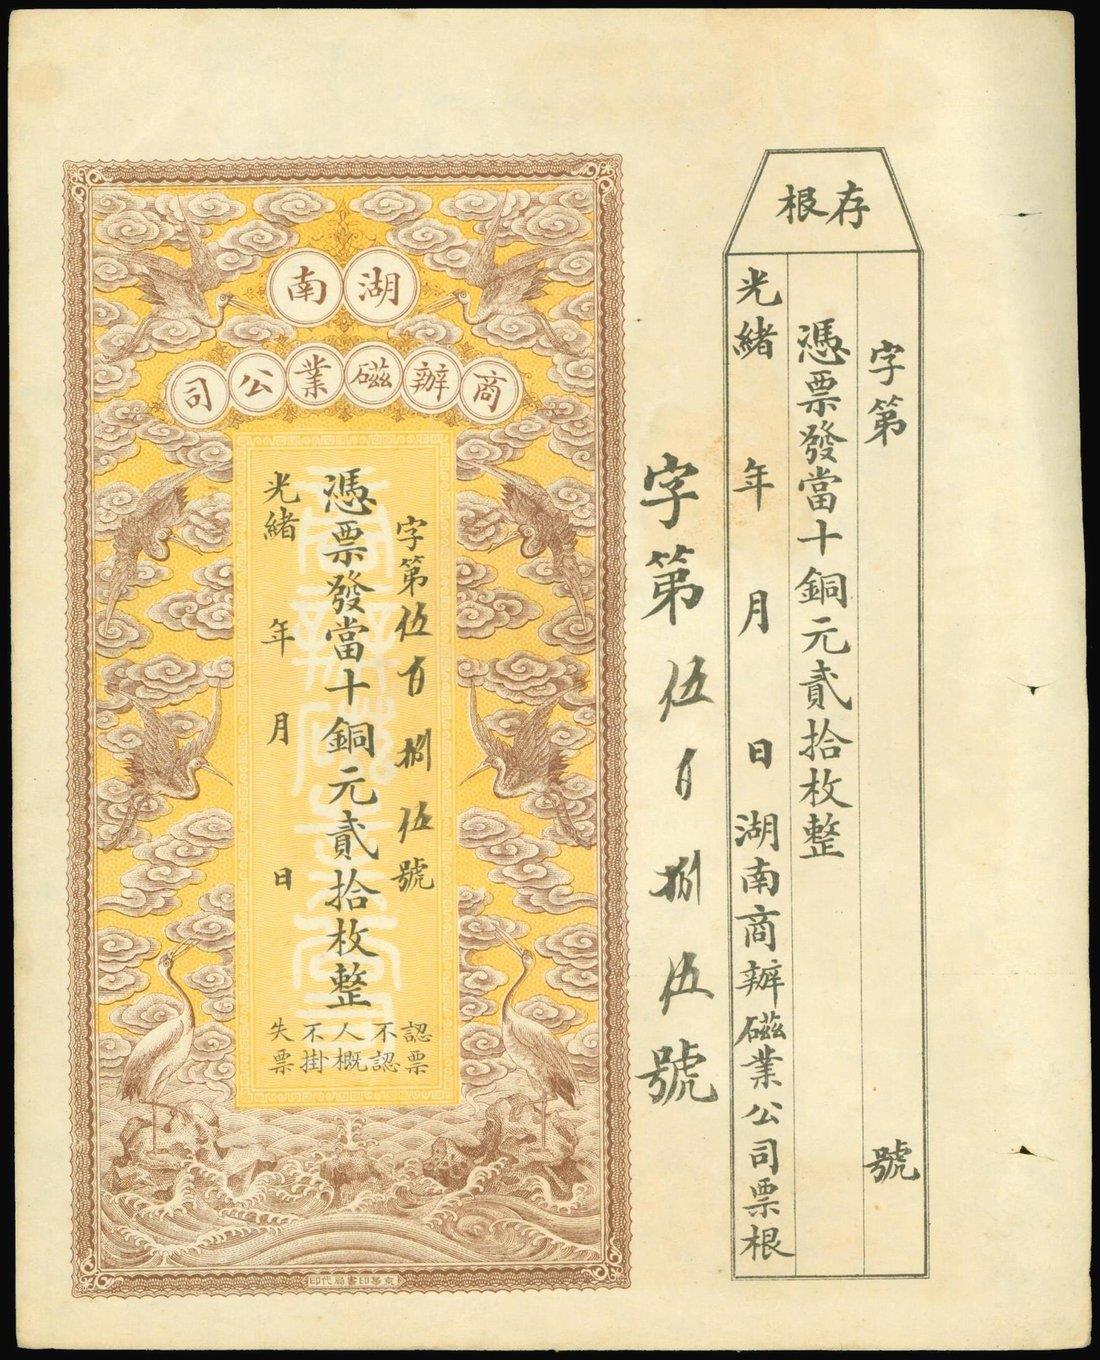 湖南
商辦磁業公司
字第伍百捌伍號
憑票發當十銅元貳拾枚整
光緒 年 月 日
認票
不認
人概
不掛
失票
字第伍百捌伍號
存根
字第 號
憑票發當十銅元貳拾枚整
光緒 年 月 日湖南商辦磁業公司票根